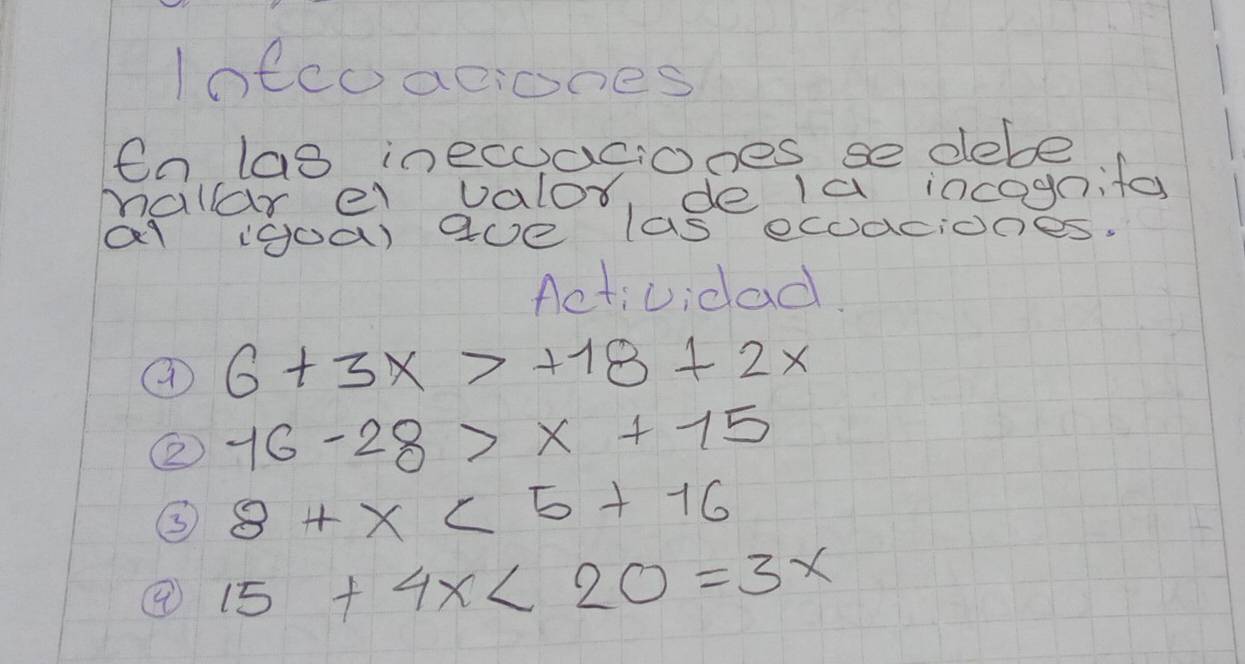 Inecuaciones
En las inecuaciones se debe
hallar el valor de la incognita
al igual que las ecuaciones.
Actividad.
① 6 + 3x > +18 + 2x
② 16 - 28 > x + 15
③ 8 + x < 5 + 16
④ 15 + 4x < 20 = 3x